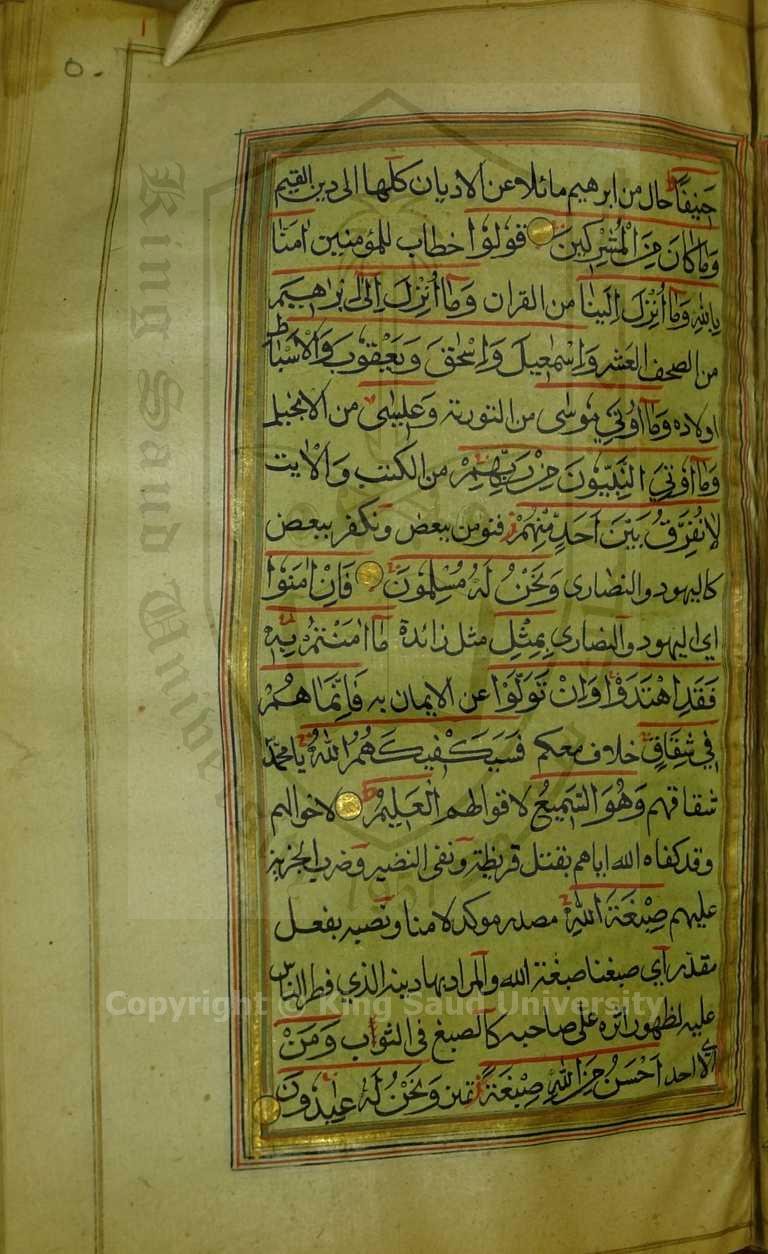 حَنِيفًا حال من ابرهيم مائلا عن الاديان كلها الى دين القيم
وَمَا كَانَ مِنَ الْمُشْرِكِينَ قُولُوا خطاب للمؤمنين اٰمَنَّا
بِاللّٰهِ وَمَا اُنْزِلَ اِلَيْنَا من القران وَمَا اُنْزِلَ اِلٰى اِبْرٰاهِيمَ
من الصحف العشر وَاِسْمٰعِيلَ وَاِسْحٰقَ وَيَعْقُوبَ وَالْاَسْبَاطِ
اولاده وَمَا اُوتِيَ مُوسٰى من التورىة وَعِيسٰى من الانجيل
وَمَا اُوتِيَ النَّبِيُّونَ مِنْ رَبِّهِمْ من الكتب والاٰيت
لَا نُفَرِّقُ بَيْنَ اَحَدٍ مِنْهُمْ فنومن ببعض ونكفر ببعض
كاليهود والنصارى وَنَحْنُ لَهُ مُسْلِمُونَ فَاِنْ اٰمَنُوا
اي اليهود والنصارى بِمِثْلِ مثل زائدة مَا اٰمَنْتُمْ بِهِ
فَقَدِ اهْتَدَوْا وَاِنْ تَوَلَّوْا عن الايمان به فَاِنَّمَا هُمْ
فِي شِقَاقٍ خلاف معكم فَسَيَكْفِيكَهُمُ اللّٰهُ يا محمد
شقاقهم وَهُوَ السَّمِيعُ لاقوالهم الْعَلِيمُ لاحوالهم
وقد كفاه الله اياهم بقتل قريظة ونفى النضير وضرب الجزية
عليهم صِبْغَةَ اللّٰهِ مصدر موكد لامنا ونصبه بفعل
مقدر اي صبغنا صبغة الله والمراد بها دينه الذي فطر الناس
عليه لظهور اثره على صاحبه كالصبغ فى الثوب وَمَنْ
اي لا احد اَحْسَنُ مِنَ اللّٰهِ صِبْغَةً تميز وَنَحْنُ لَهُ عٰبِدُونَ
King Saud University
1957
Copyright © King Saud University